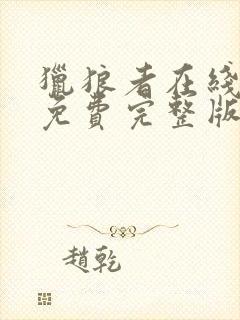 獵狼者在綫
免費完整版
趙乾